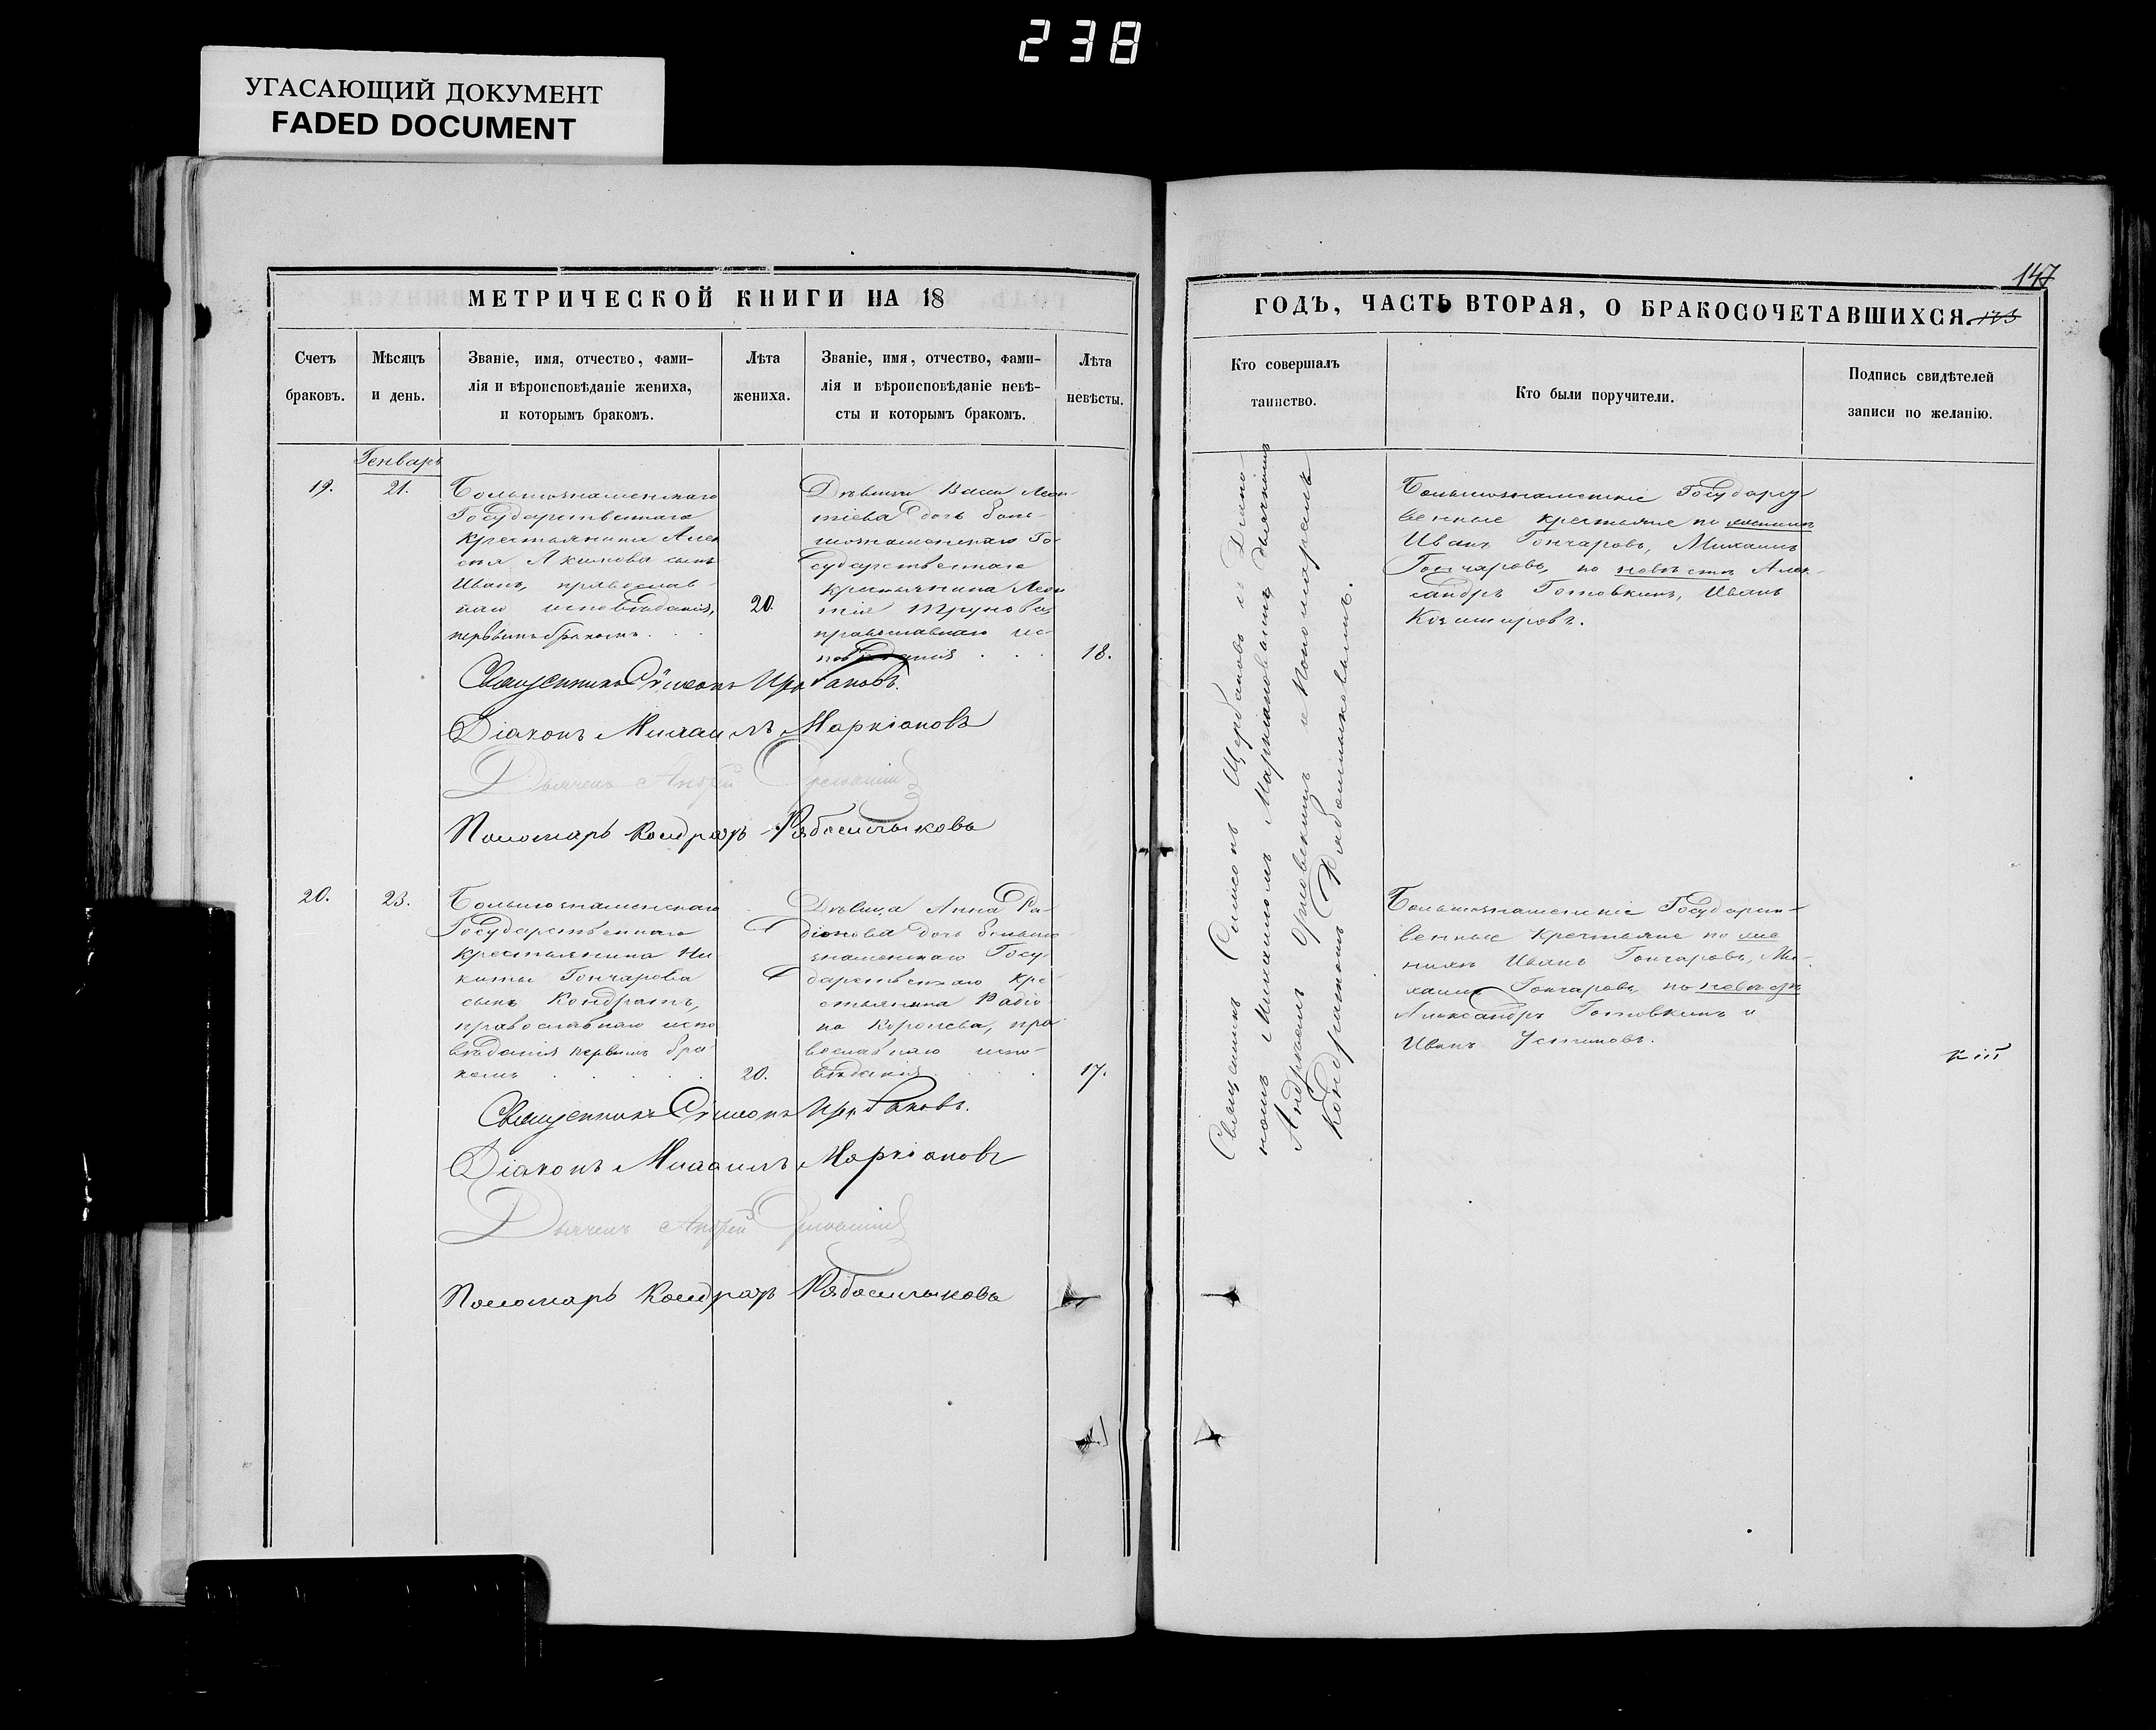 238
УГАСАЮЩИЙ ДОКУМЕНТ
FADED DOCUMENT
МЕТРИЧЕСКОЙ КНИГИ НА 18
Счетъ
браковъ.
Мѣсяцъ
и день.
Званіе, имя, отчество, фами-
лія и вѣроисповѣданіе жениха,
и которымъ бракомъ.
Лѣта
жениха.
Званіе, имя, отчество, фами-
лія и вѣроисповѣданіе невѣ-
сты и которымъ бракомъ.
Лѣта
невѣсты.
Генварь
19.
21.
Большознаменскаго
Государственнаго
крестьянина Алек
сѣя Акимова сынъ
Иванъ, православ-
наго исповѣданія,
первымъ бракомъ.
20.
Дѣвица Леон-
тіева дочь боль-
шознаменскаго Го-
сударственнаго
крестьянина Леон
тія Трунова,
православнаго ис-
повѣданія
18.
Священникъ Симеонъ Щербановъ.
Діаконъ Михаилъ Маркіановъ
Дьячекъ Андрей
Пономарь Кондратъ Рябошлыковъ
20.
23.
Большознаменскаго
Государственнаго
крестьянина Ни
киты Гончарова
сынъ Кондратъ,
православнаго испо
вѣданія первымъ бра
комъ
20.
Дѣвица Анна Ра-
діонова дочь больше-
знаменскаго Госу-
дарственнаго кре-
стьянина Радіо-
на Королева, пра-
вославнаго испо-
вѣданія
17.
Священникъ Симеонъ Щербановъ.
Діаконъ Михаилъ Маркіановъ
Дьячекъ Андрей
Пономарь Кондратъ Рябошлыковъ
147
ГОДЪ, ЧАСТЬ ВТОРАЯ, О БРАКОСОЧЕТАВШИХСЯ.
Кто совершалъ
таинство.
Кто были поручители.
Подпись свидѣтелей
записи по желанію.
Священникъ Симеонъ Щербановъ съ Діако-
номъ Михаиломъ Маркіановымъ, дьячкомъ
Андреемъ и Пономаремъ
Кондратомъ Рябошлыковымъ.
Большознаменскіе Государст
венные крестьяне по женихѣ
Иванъ Гончаровъ, Михаилъ
Гончаровъ, по невѣстѣ Алек-
сандръ Готовкинъ, Иванъ
Большознаменскіе Государст-
венные крестьяне по же
нихѣ Иванъ Гончаровъ, Ми-
хаилъ Гончаровъ, по невѣстѣ
Александръ Готовкинъ и
Иванъ Устиновъ.